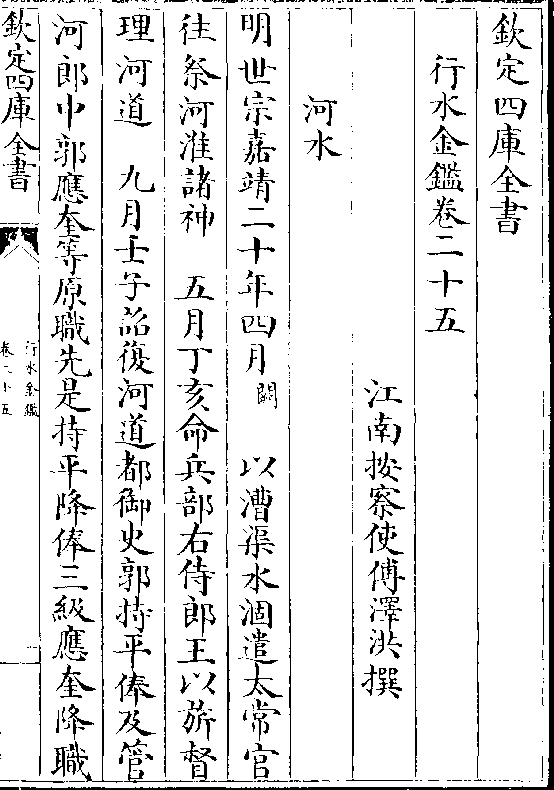 欽定四庫全書
行水金鑑卷二十五
江南按察使傅澤洪撰
河水
明世宗嘉靖二十年四月闕 以漕渠水涸遣太常官
往祭河淮諸神 五月丁亥命兵部右侍郎王以旂督
理河道 九月壬子詔復河道都御史郭持平俸及管
河郎中郭應奎等原職先是持平降俸三級應奎降職
欽定四庫全書
行水金鑑
卷二十五